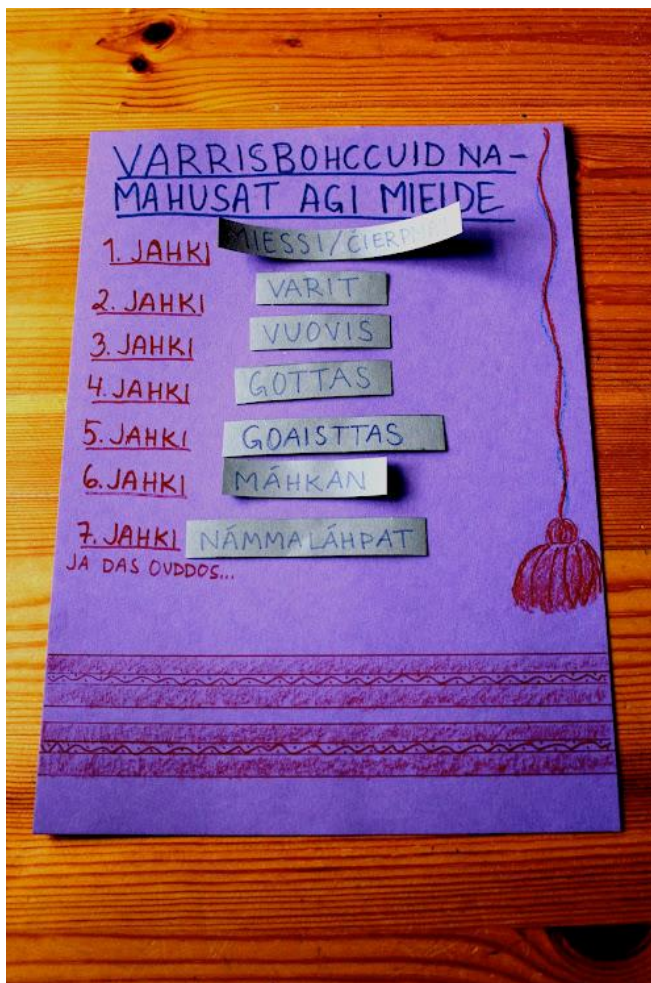 VARRISBOHCCUID NA-
MAHUSAT AGI MIELDE
1. JAHKI MIESSI/ČIERPMAT
2. JAHKI VARIT
3. JAHKI VUOVIS
4. JAHKI GOTTAS
5. JAHKI GOAISTTAS
6. JAHKI MÁHKAN
7. JAHKI NÁMMALÁHPAT
JA DAS OVDDOS...